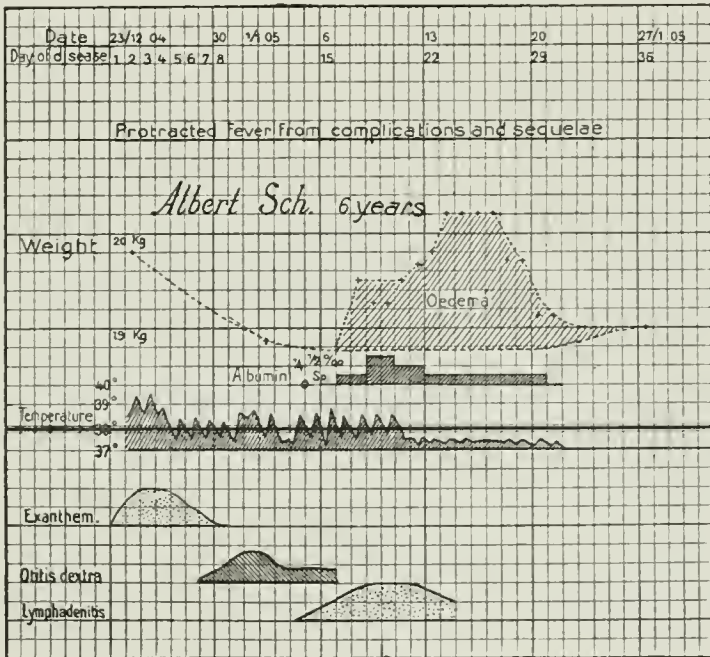 Date 23/12 04 30 1/1 05 6 13 20 27/1 05
Day of disease 1 2 3 4 5 6 7 8 15 22 29 36
Protracted fever from complications and sequelae
Albert Sch. 6 years
Weight 20 Kg
Oedema
19 Kg
Albumin 1/4 1/2 ‰ Sp.
40°
39°
Temperature 38°
37°
Exanthem.
Otitis dextra
Lymphadenitis